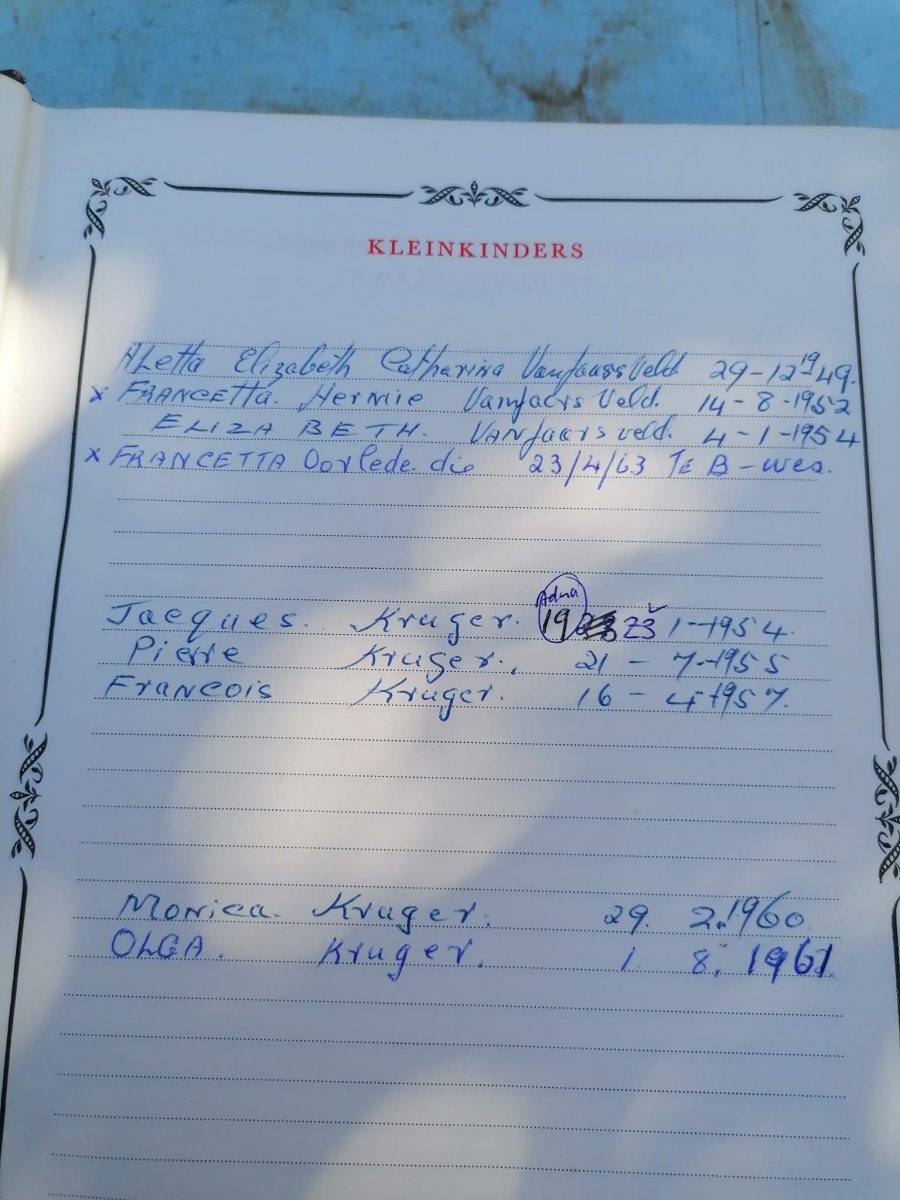 KLEINKINDERS
ALetta Elizabeth Catharina VanJaarsVeld 29-12 19 49.
x FRANCETTA. Hermie VanJaarsVeld. 14-8-1952
ELIZABETH. VanJaarsveld. 4-1-1954
x FRANCETTA Oorlede. die 23/4/63 Te B-wes.
Adna
Jacques. Kruger. 19 23 1-1954.
Pierre Kruger. 21 - 7-1955
Francois Kruger. 16 - 4-1957.
Monica. Kruger. 29. 2.1960
OLGA. Kruger. 1. 8. 1961.